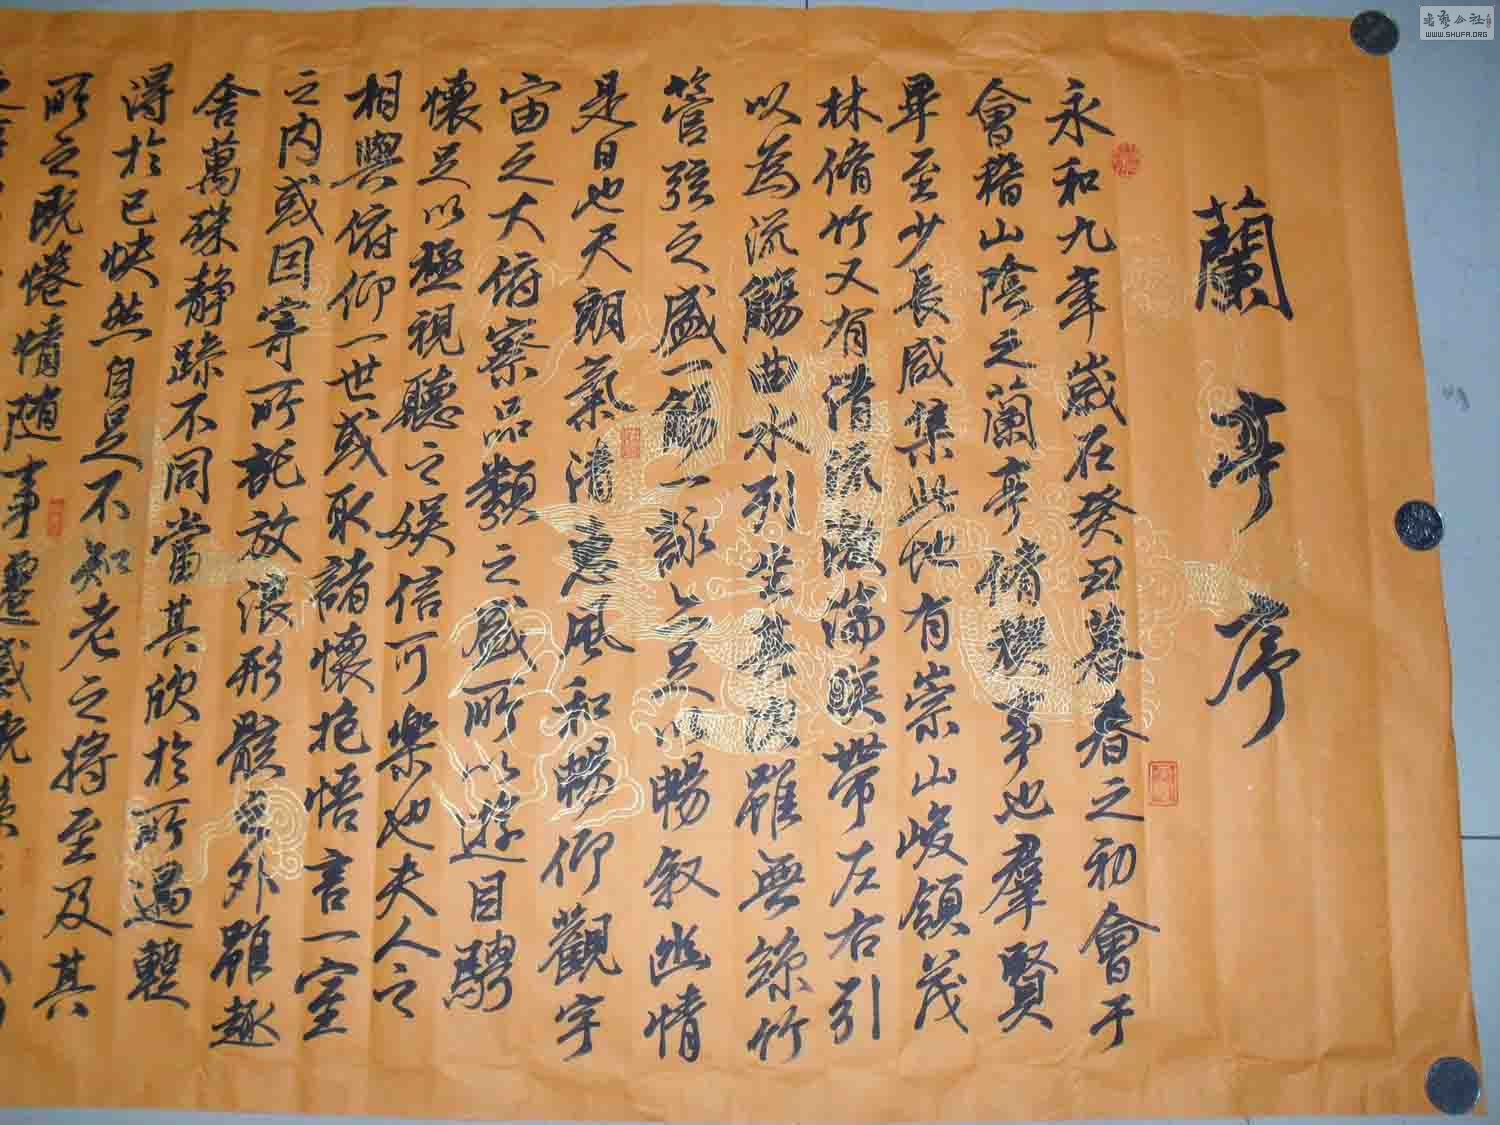 蘭亭序
永和九年歲在癸丑暮春之初會于
會稽山陰之蘭亭脩禊事也羣賢
畢至少長咸集此地有崇山峻領茂
林脩竹又有清流激湍暎帶左右引
以為流觴曲水列坐其次雖無絲竹
管弦之盛一觴一詠亦足以暢叙幽情
是日也天朗氣清惠風和暢仰觀宇
宙之大俯察品類之盛所以遊目騁
懷足以極視聽之娛信可樂也夫人之
相與俯仰一世或取諸懷抱悟言一室
之内或因寄所託放浪形骸之外雖趣
舍萬殊静躁不同當其欣於所遇暫
得於己快然自足不知老之将至及其
所之既惓情随事遷感慨係
WWW.SHUFA.ORG